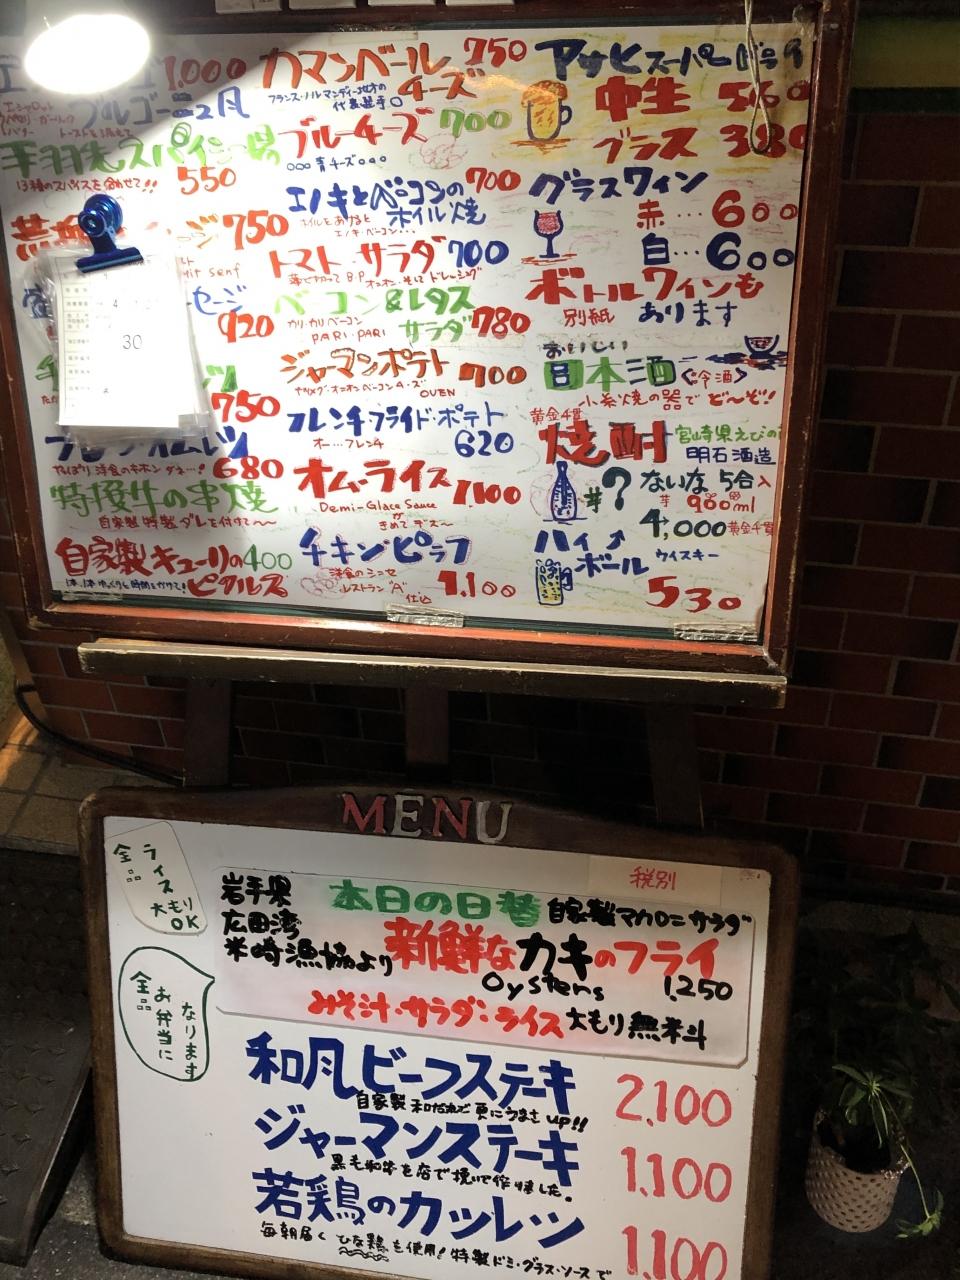 1,000
ブルゴーニュ風
手羽先スパイシー揚
13種のスパイスを合わせて!!
550
750
セージ
920
30
750
オムレツ
やっぱり洋食のキホンダネ…!
680
特撰牛の串焼
自家製特製ダレを付けて～～
自家製キューリの400
ピクルス
カマンベール 750
チーズ
フランス・ノルマンディー地方の
代表選手○
ブルーチーズ 700
○○○青チーズ○○○
エノキとベーコンの 700
ホイル焼
ホイルをあけると
エノキ・ベーコン…
トマトサラダ 700
ベーコン&レタス
カリ・カリベーコン
PARI・PARI
サラダ 780
ジャーマンポテト
700
OVEN
フレンチフライド・ポテト
オー…フレンチ
620
オムライス
1,100
Demi-Glace Sauce
が
きめてデス～
チキンピラフ
レストラン"A"
仕込
1,100
アサヒスーパードライ
中生
グラス 380
グラスワイン
赤…600
白…600
ボトルワインも
別紙 あります
おいしい
日本酒<冷酒>
小糸焼の器でど～ぞ!
黄金千貫
焼酎
宮崎県えびの
明石酒造
?ないな 5合入
芋 900ml
4,000 黄金千貫
ハイ
ボール
ウイスキー
530
MENU
ライス
大もり
OK
全品
税別
岩手県
広田湾
米崎漁協より
本日の日替 自家製マカロニサラダ
新鮮なカキのフライ
Oysters 1,250
みそ汁・サラダ・ライス大もり無料
全品
お弁当に
なります
和風ビーフステキ
2,100
自家製和だれで更にうまさup!!
ジャーマンステーキ
1,100
黒毛和牛を店で挽いて作りました。
若鶏のカツレツ
1,100
毎朝届くひな鶏を使用!特製ドミ・グラス・ソースで